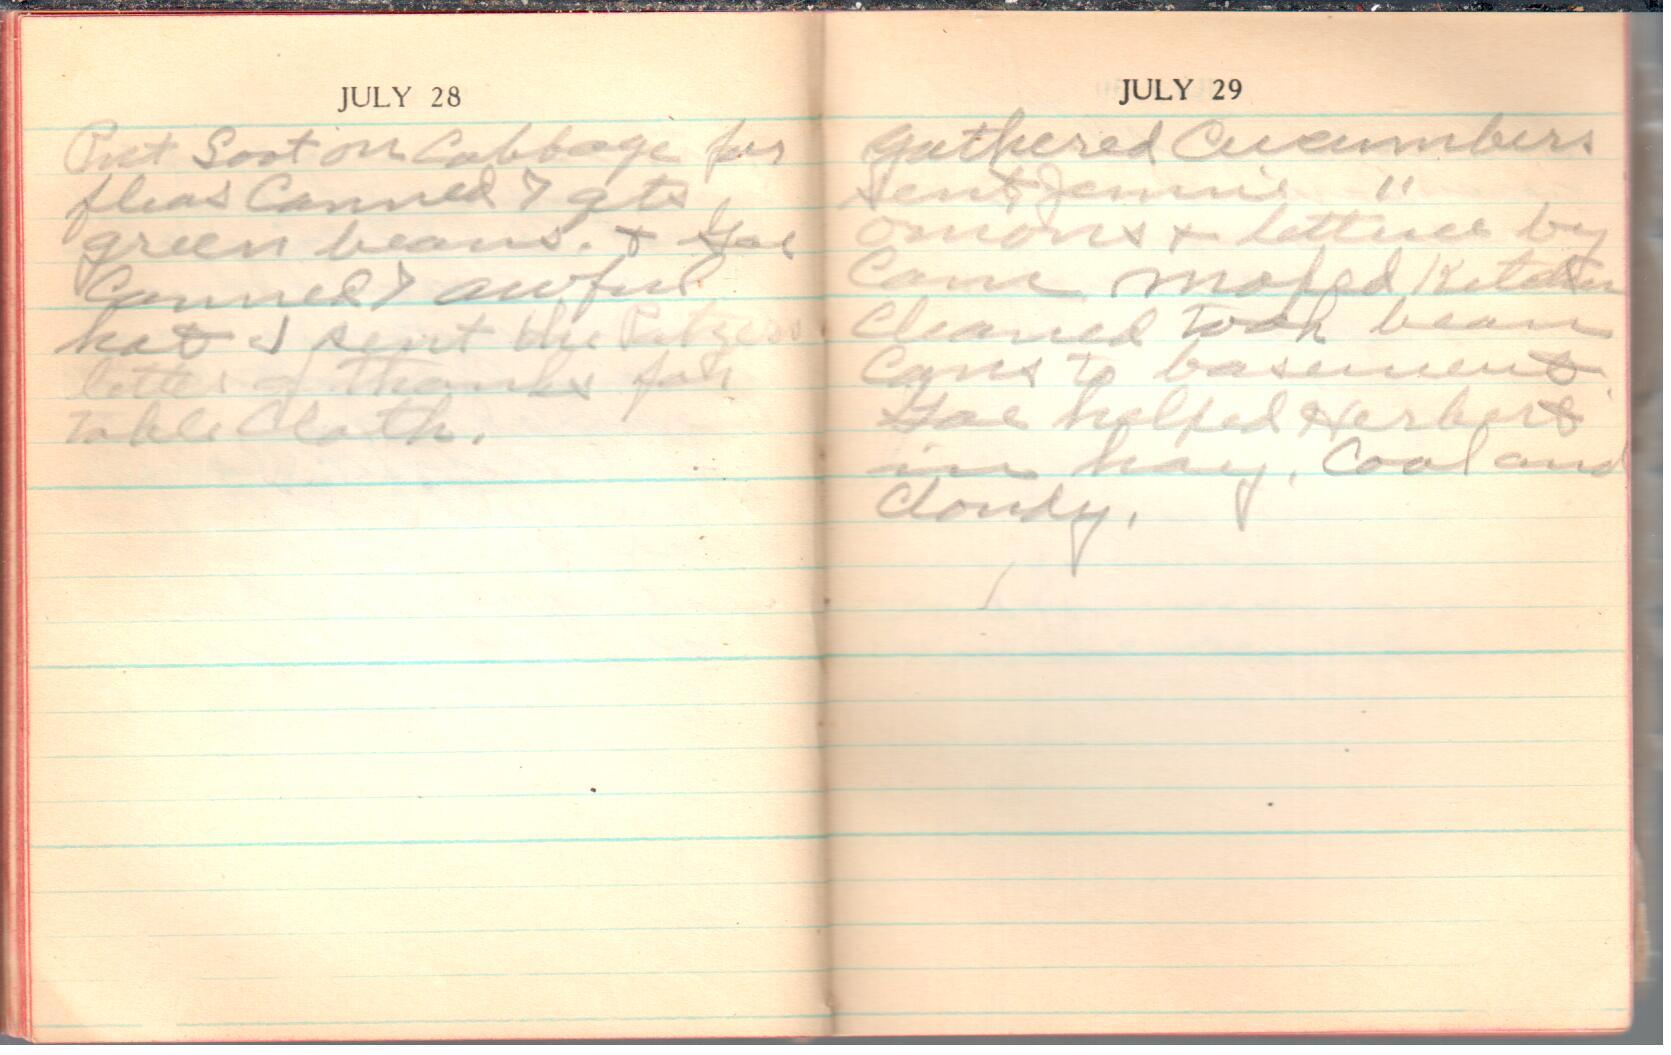 JULY 28
Put Soot on Cabbage for
fleas Canned 7 qts
green beans. &
Canned 7 awful
hot I sent the
letter of thanks for
table Cloth.
JULY 29
gathered Cucumbers
sent Jennie "
onions & lettuce by
moped Kitchen
Cleaned took bean
Cans to basement
helped Herbert
in hay. Cool and
Cloudy.